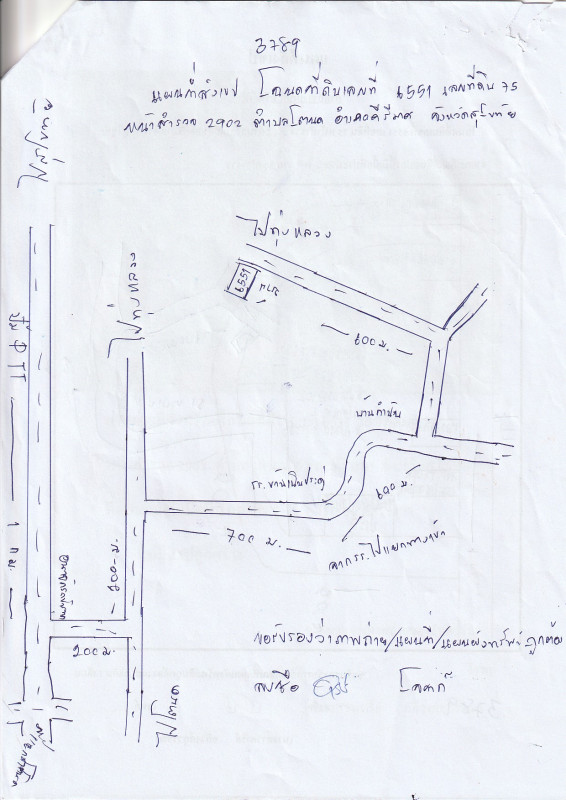 3789
แผนที่สังเขป โฉนดที่ดินเลขที่ 6551 เลขที่ดิน 75
หน้าสำรวจ 2902 ตำบลโตนด อำเภอคีรีมาศ จังหวัดสุโขทัย
ไปสุโขทัย
ไปทุ่งหลวง
ไปทุ่งหลวง
6551
600 ม.
บ้านกำนัน
600 ม.
700 ม.
จาก รร. ไปแยกทางเข้า
ปั๊ม PTT
1 กม.
200 ม.
ไปโตนด
ขอรับรองว่าภาพถ่าย/แผนที่/แผนผังทรัพย์ถูกต้อง
ลงชื่อ โจทก์